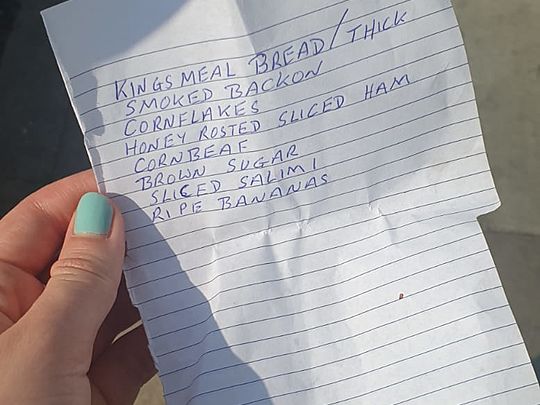 KINGSMEAL BREAD/THICK
SMOKED BACKON
CORNFLAKES
HONEY ROSTED SLICED HAM
CORNBEAF
BROWN SUGAR
SLICED SALIMI
RIPE BANANAS